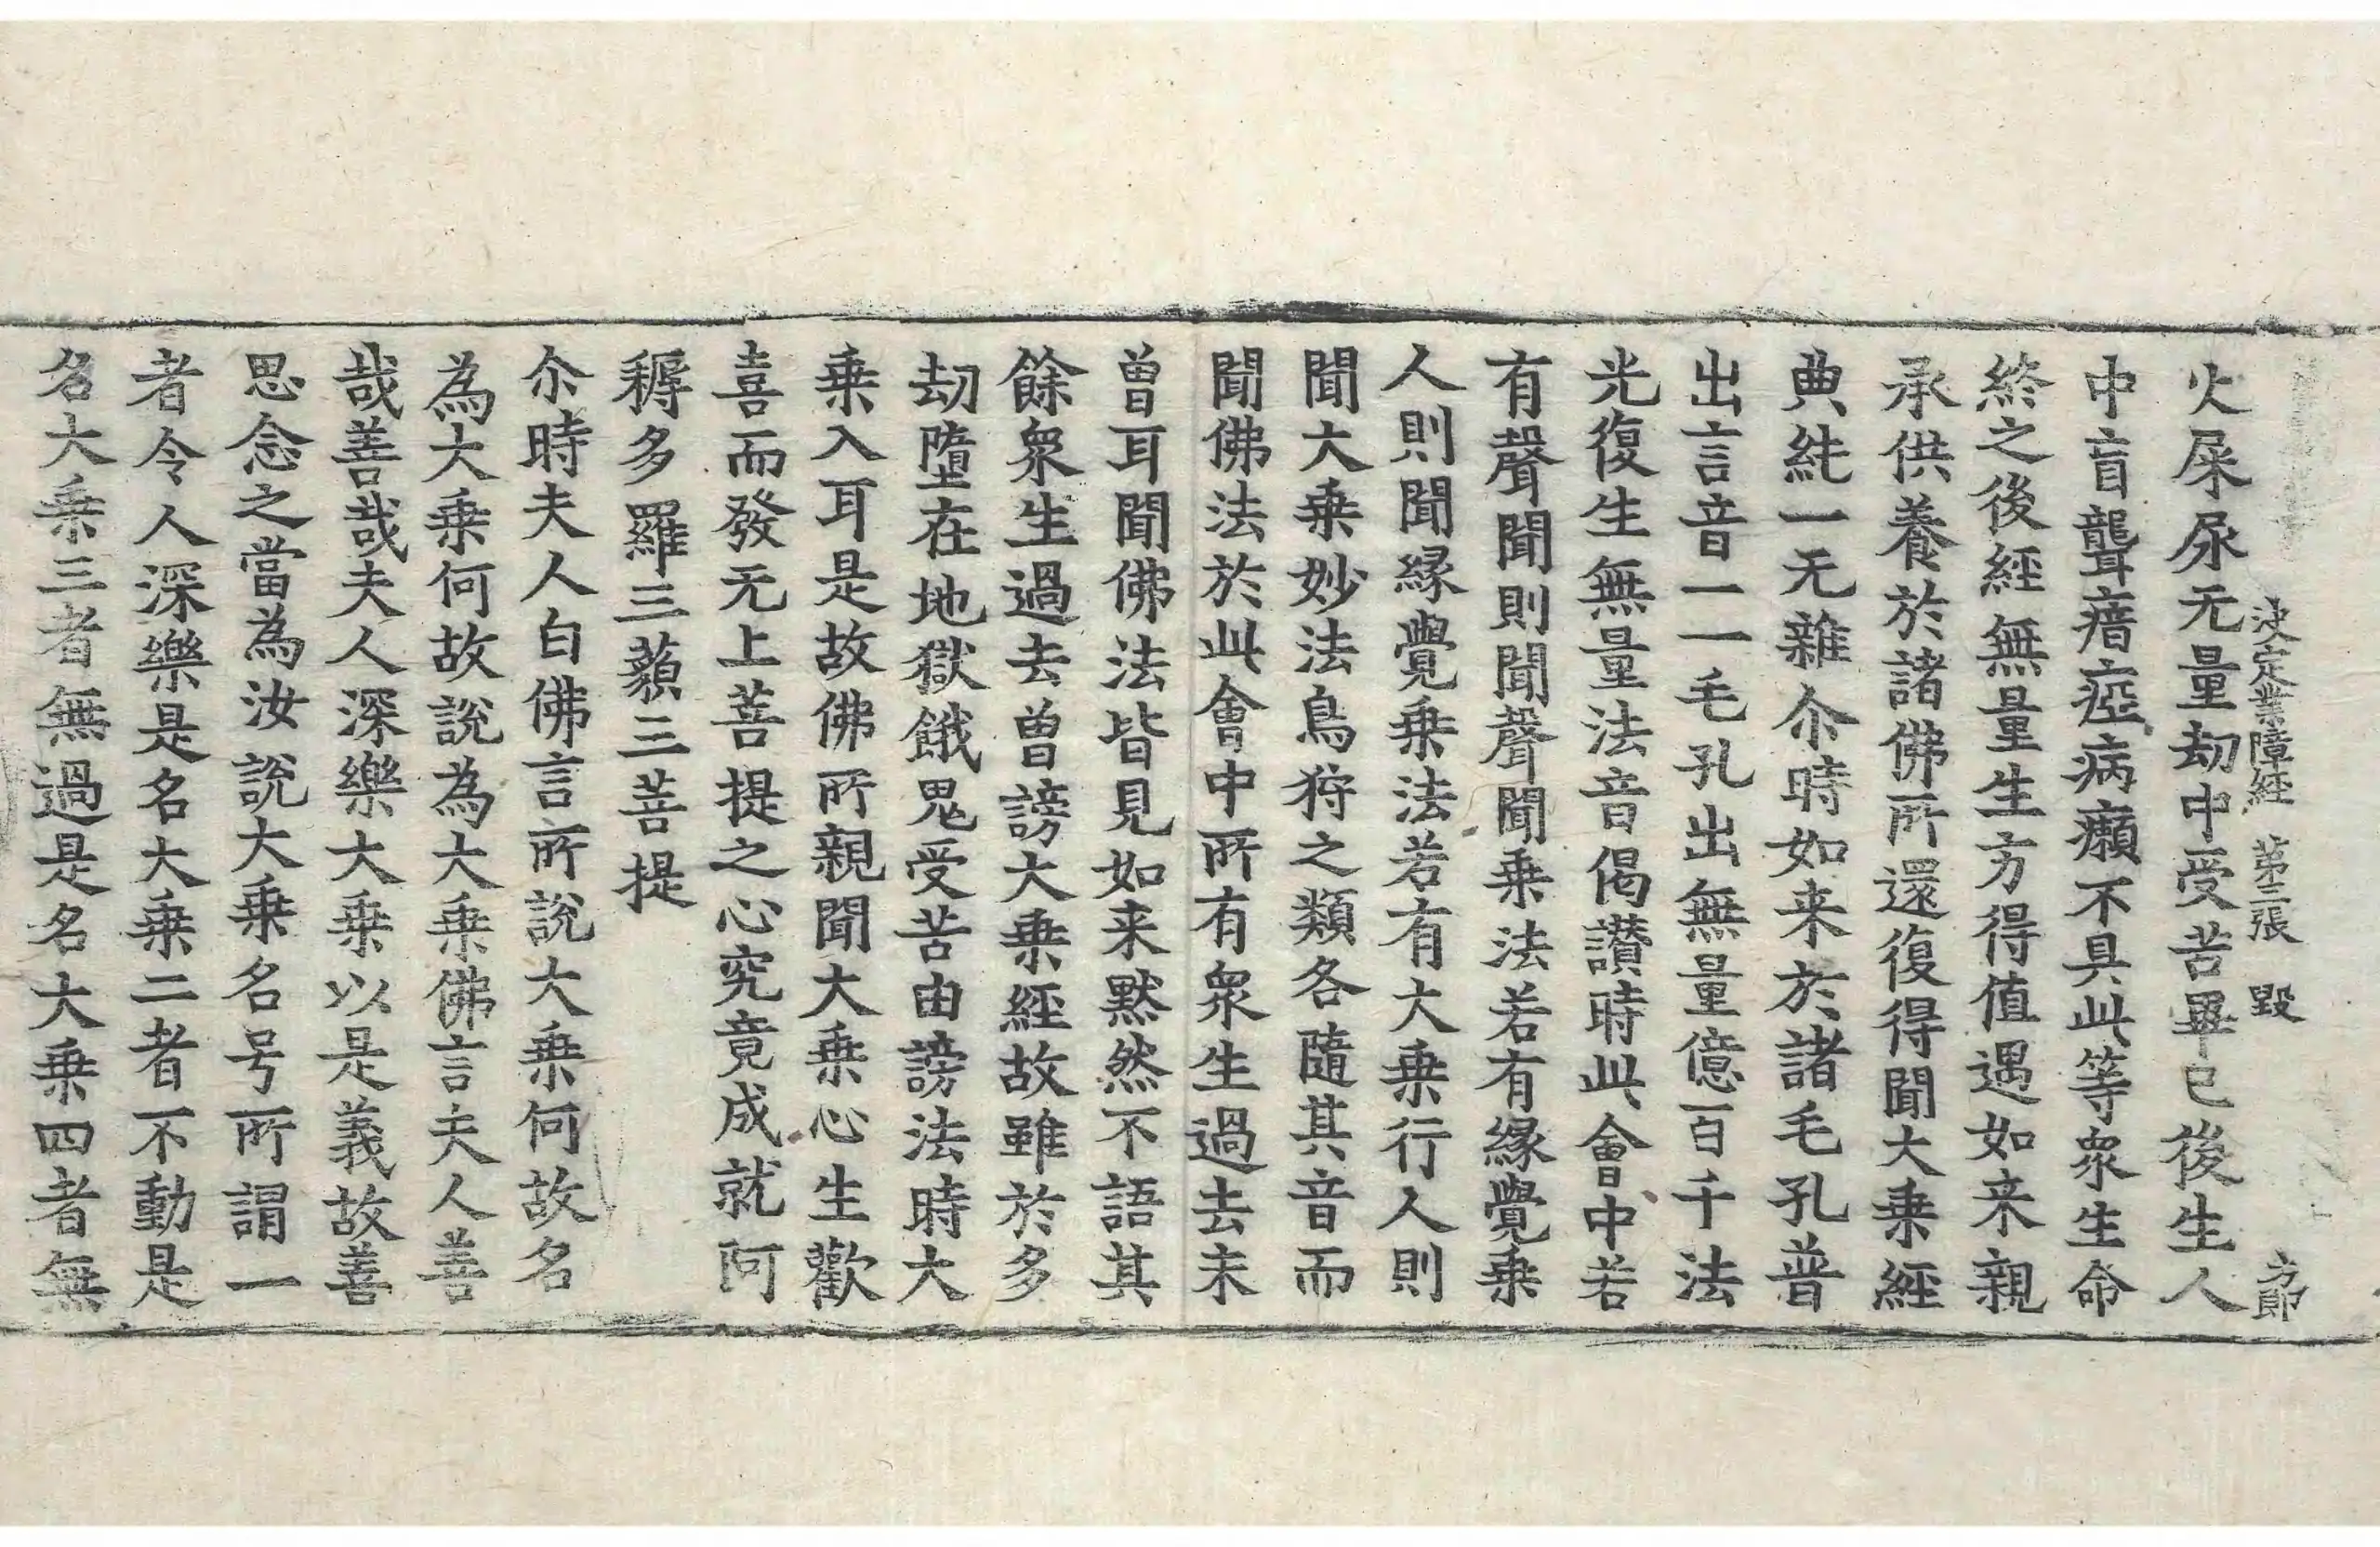 決定業障經 第三張 毀 方節
火屎尿无量劫中受苦畢已後生人
中盲聾瘖瘂病癩不具此等衆生命
終之後經無量生方得值遇如来親
承供養於諸佛所還復得聞大乗經
典純一无雜尒時如来於諸毛孔普
出言音一一毛孔出無量億百千法
光復生無量法音偈讃時此會中若
有聲聞則聞聲聞乗法若有縁覺乗
人則聞縁覺乗法若有大乗行人則
聞大乗妙法鳥狩之類各隨其音而
聞佛法於此會中所有衆生過去未
曽耳聞佛法皆見如来黙然不語其
餘衆生過去曽謗大乗經故雖於多
劫墮在地獄餓鬼受苦由謗法時大
乗入耳是故佛所親聞大乗心生歡
喜而發无上菩提之心究竟成就阿
耨多羅三藐三菩提
尒時夫人白佛言所說大乗何故名
為大乗何故說為大乗佛言夫人善
哉善哉夫人深樂大乗以是義故善
思念之當為汝說大乗名号所謂一
者令人深樂是名大乗二者不動是
名大乗三者無過是名大乗四者無